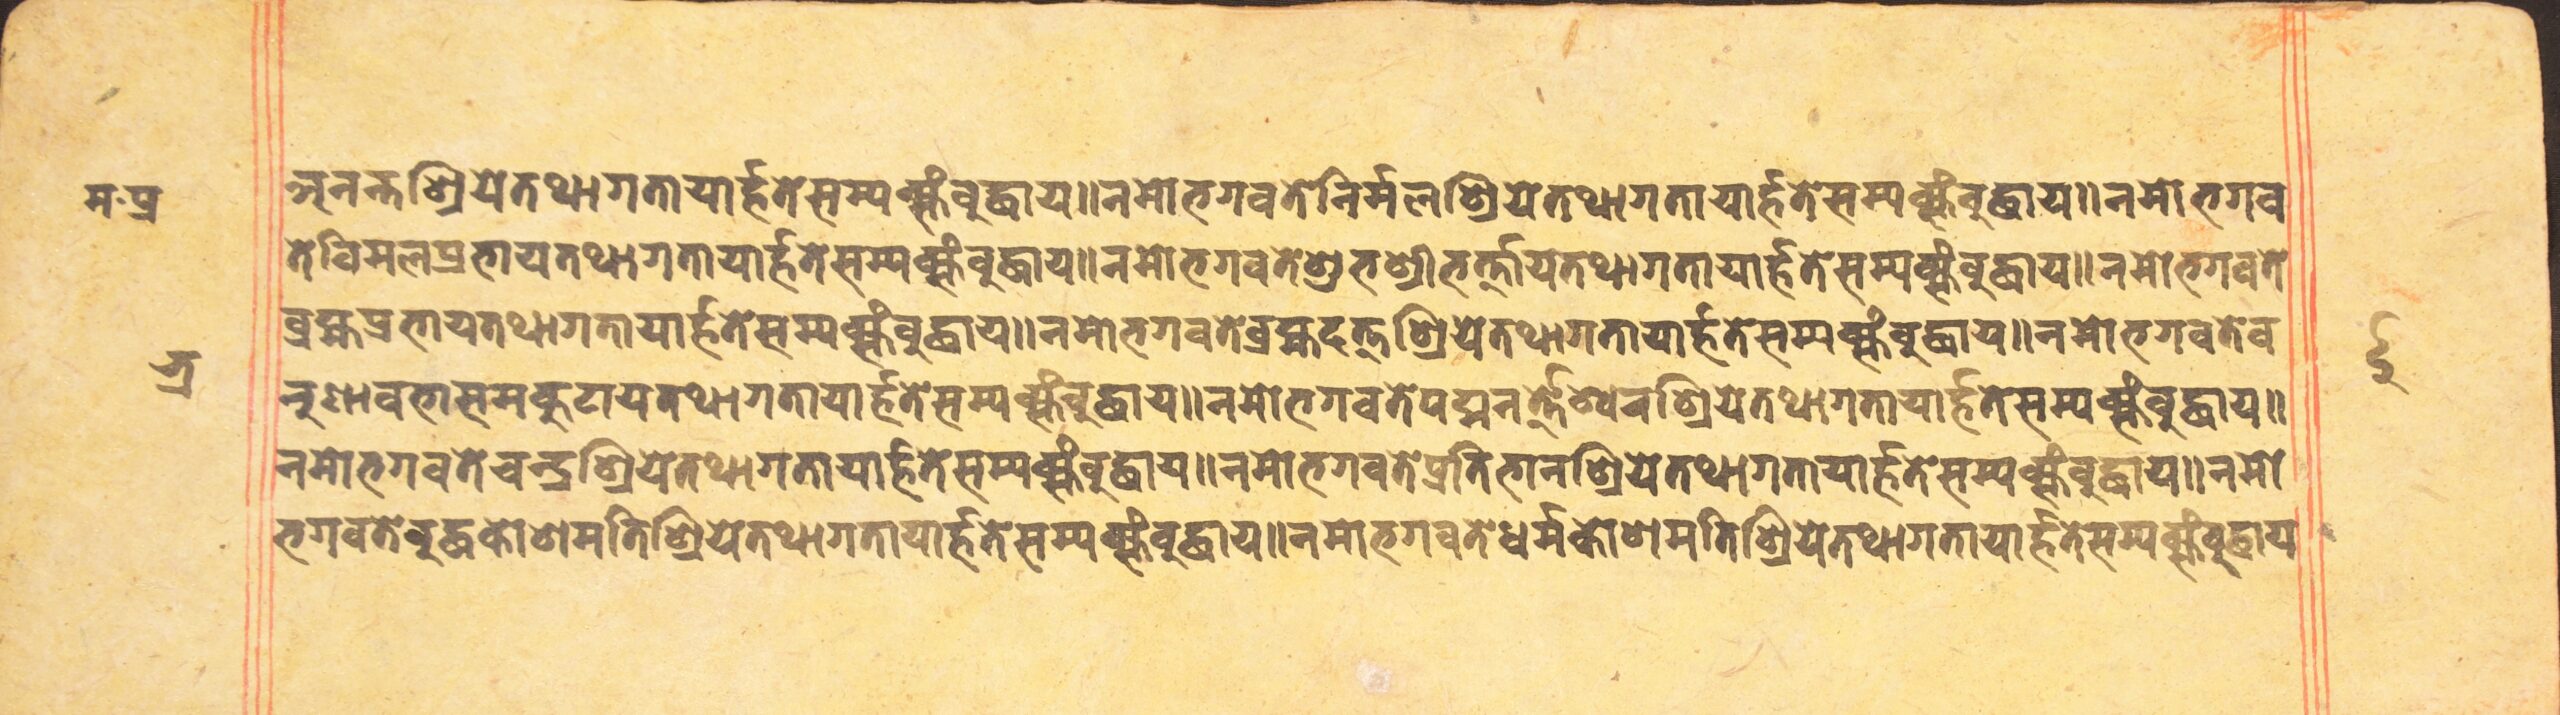 म॰प्र
अनन्तश्रियेतथागतायार्हतेसम्यक्संबुद्धाय॥नमोभगवतेनिर्मलश्रियेतथागतायार्हतेसम्यक्संबुद्धाय॥नमोभगव
तेविमलप्रभायतथागतायार्हतेसम्यक्संबुद्धाय॥नमोभगवतेशुभश्रीभर्त्तायतथागतायार्हतेसम्यक्संबुद्धाय॥नमोभगवते
ब्रह्मप्रभायतथागतायार्हतेसम्यक्संबुद्धाय॥नमोभगवतेब्रह्मदत्तश्रियेतथागतायार्हतेसम्यक्संबुद्धाय॥नमोभगवतेव
रुणावभासमकुटायतथागतायार्हतेसम्यक्संबुद्धाय॥नमोभगवतेपद्मनर्त्तेश्वरश्रियेतथागतायार्हतेसम्यक्संबुद्धाय॥
नमोभगवतेचन्द्रश्रियेतथागतायार्हतेसम्यक्संबुद्धाय॥नमोभगवतेप्रतिभानश्रियेतथागतायार्हतेसम्यक्संबुद्धाय॥नमो
भगवतेबुद्धकोशमतिश्रियेतथागतायार्हतेसम्यक्संबुद्धाय॥नमोभगवतेधर्मकोशमतिश्रियेतथागतायार्हतेसम्यक्संबुद्धाय